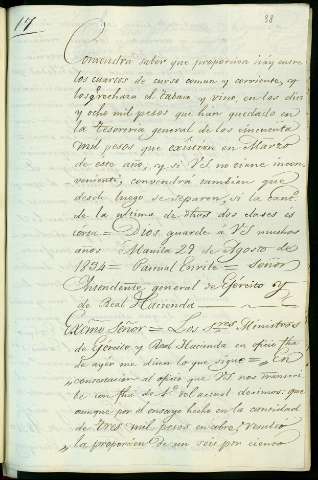 17
38
Convendrá saber que proporcion hay entre
los cuartos de curso comun y corriente, q̃
los q̃ rechaza el tabaco y vino, en los diez
y ocho mil pesos que han quedado en
la tesoreria general de los cincuenta
mil pesos que existian en Marzo
de este año, q̃ si VS no tiene incon
veniente, convendrá tambien que
desde luego se separen, si la cant.
de la ultima de dhas dos clases es
corta = Dios guarde á VS muchos
años Manila 29 de Agosto de
1834 = Pascual Enrile = Señor
Intendente general de Ejército y
de Real Hacienda
Exc̃mo Señor = Los S.res Ministros
de Ejercito y Real Hacienda en oficio fha
de ayer me dicen lo que sigue = „En
„contestacion al oficio que VS nos transcri
be con fha de 1.º del actual decimos: que
aunque por el ensayo hecho en la cantidad
de tres mil pesos en cobre, resultó
„la proporcion de un seis por ciento